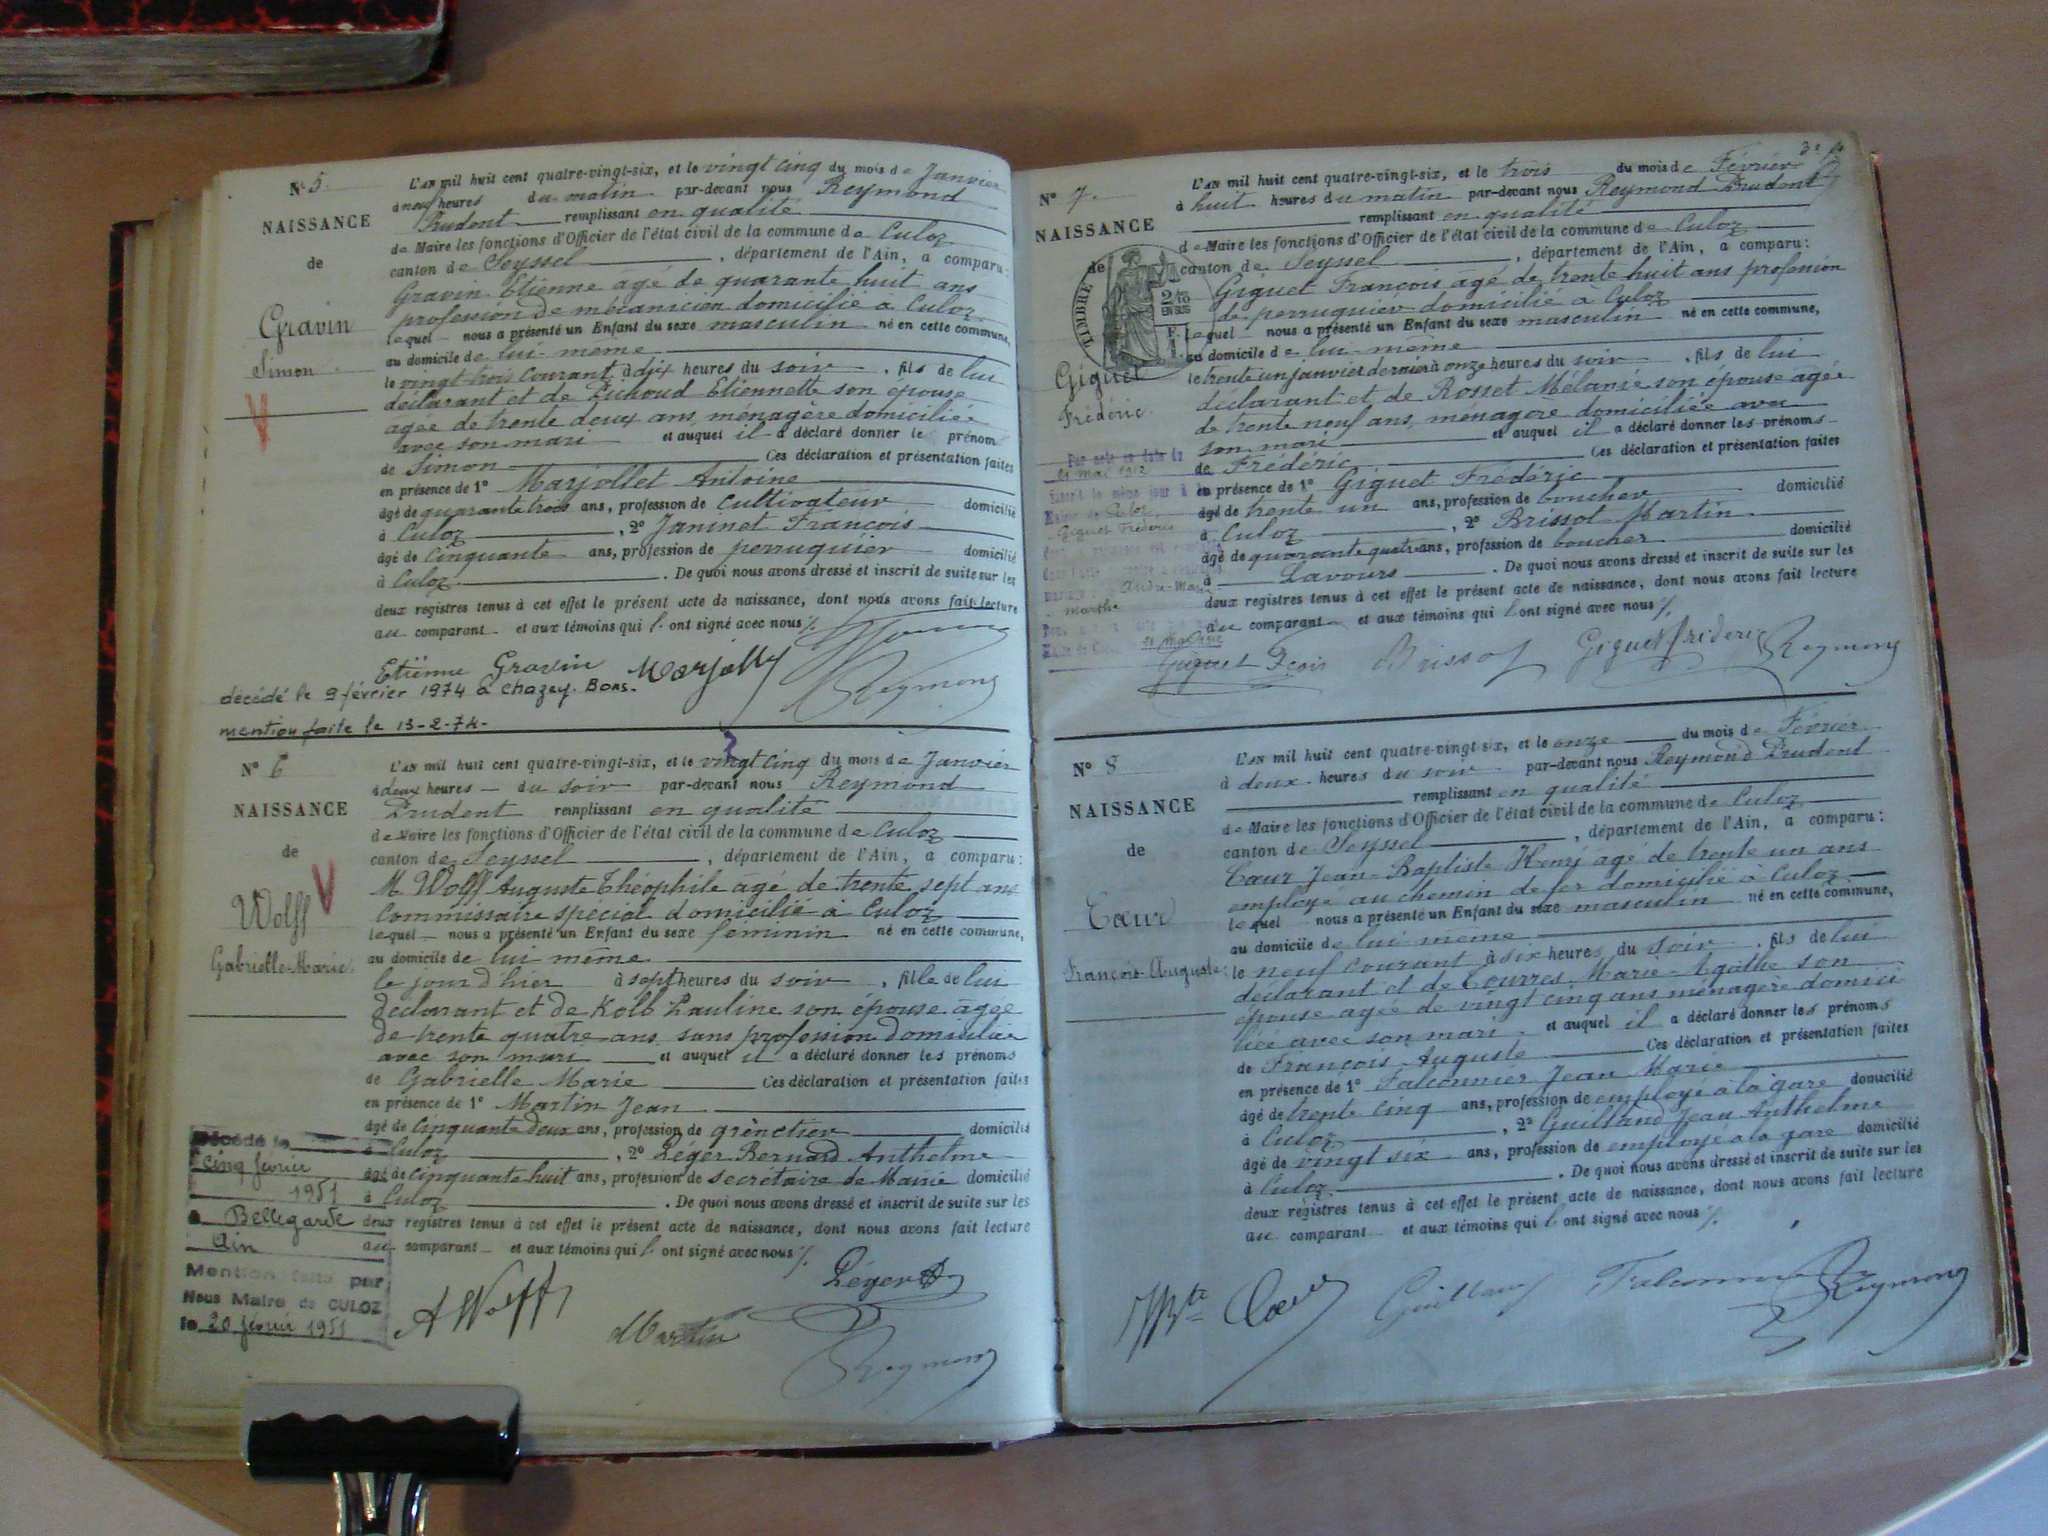 N° 5.
NAISSANCE
de
Gravin
Simon
L'an mil huit cent quatre-vingt-six, et le vingt cinq du mois de Janvier
à neuf heures du matin par-devant nous Reymond
Prudent remplissant en qualité
de Maire les fonctions d'Officier de l'état civil de la commune de Culoz
canton de Seyssel, département de l'Ain, a comparu:
Gravin Etienne âgé de quarante huit ans
profession de mécanicien domicilié à Culoz
lequel nous a présenté un Enfant du sexe masculin né en cette commune,
au domicile de lui-même
le vingt trois courant à dix heures du soir, fils de lui
déclarant et de Etiennette son épouse
agée de trente deux ans, ménagère domiciliée
avec son mari et auquel il a déclaré donner le prénom
de Simon Ces déclaration et présentation faites
en présence de 1° Marjollet Antoine
âgé de quarante trois ans, profession de cultivateur domicilié
à Culoz, 2° Janinet François
âgé de cinquante ans, profession de perruquier domicilié
à Culoz. De quoi nous avons dressé et inscrit de suite sur les
deux registres tenus à cet effet le présent acte de naissance, dont nous avons fait lecture
au comparant et aux témoins qui l'ont signé avec nous
Etiènne Gravin Marjolly Reymond
décédé le 9 février 1974 à Chazey. Bons.
mention faite le 13-2-74.
N° 6
NAISSANCE
de
Wolff
Gabrielle-Marie
L'an mil huit cent quatre-vingt-six, et le vingt cinq du mois de Janvier
à deux heures du soir par-devant nous Reymond
Prudent remplissant en qualité
de Maire les fonctions d'Officier de l'état civil de la commune de Culoz
canton de Seyssel, département de l'Ain, a comparu:
M. Wolff Auguste Théophile âgé de trente sept ans
Commissaire spécial domicilié à Culoz
lequel nous a présenté un Enfant du sexe féminin né en cette commune,
au domicile de lui même
le jour d'hier à sept heures du soir, fille de lui
déclarant et de Kolb Pauline son épouse âgée
de trente quatre ans sans profession domiciliée
avec son mari et auquel il a déclaré donner les prénoms
de Gabrielle Marie Ces déclaration et présentation faites
en présence de 1° Martin Jean
âgé de cinquante deux ans, profession de grènetier domicilié
à Culoz, 2° Léger Bernard Anthelme
âgé de cinquante huit ans, profession de secrétaire de Mairie domicilié
à Culoz. De quoi nous avons dressé et inscrit de suite sur les
deux registres tenus à cet effet le présent acte de naissance, dont nous avons fait lecture
au comparant et aux témoins qui l'ont signé avec nous
Décédé le
cinq février
1951
à Bellegarde
Ain
Mention faite par
Nous Maire de CULOZ
le 20 février 1951
A Wolff Martin Léger Reymond
N° 7.
NAISSANCE
de
TIMBRE
2/10
EN SUS
Giguet
Frédéric
L'an mil huit cent quatre-vingt-six, et le trois du mois de Février
à huit heures du matin par-devant nous Reymond Prudent
remplissant en qualité
de Maire les fonctions d'Officier de l'état civil de la commune de Culoz
canton de Seyssel, département de l'Ain, a comparu:
Giguet François âgé de trente huit ans profession
de perruquier domicilié à Culoz
lequel nous a présenté un Enfant du sexe masculin né en cette commune,
au domicile de lui-même
le trente un janvier dernier à onze heures du soir, fils de lui
déclarant et de Rosset Mélanie son épouse âgée
de trente neuf ans, ménagère domiciliée avec
son mari et auquel il a déclaré donner les prénoms
de Frédéric Ces déclaration et présentation faites
en présence de 1° Giguet Frédéric
âgé de trente un ans, profession de boucher domicilié
à Culoz, 2° Brissot Martin
âgé de quarante quatre ans, profession de boucher domicilié
à Lavours. De quoi nous avons dressé et inscrit de suite sur les
deux registres tenus à cet effet le présent acte de naissance, dont nous avons fait lecture
au comparant et aux témoins qui l'ont signé avec nous
Par acte en date du
mai 1912
Culoz
Giguet Frédéric
Marthe
Giguet Fcois Brissot Giguet Frideric Reymond
N° 8
NAISSANCE
de
Cœur
François-Auguste
L'an mil huit cent quatre-vingt-six, et le onze du mois de Février
à deux heures du soir par-devant nous Reymond Prudent
remplissant en qualité
de Maire les fonctions d'Officier de l'état civil de la commune de Culoz
canton de Seyssel, département de l'Ain, a comparu:
Cœur Jean-Baptiste Henri âgé de trente un ans
employé au chemin de fer domicilié à Culoz
lequel nous a présenté un Enfant du sexe masculin né en cette commune,
au domicile de lui même
le neuf courant à six heures du soir, fils de lui
déclarant et de Tourres Marie-Agathe son
épouse agée de vingt cinq ans ménagère domici
liée avec son mari et auquel il a déclaré donner les prénoms
de François Auguste Ces déclaration et présentation faites
en présence de 1° Falconnier Jean Marie
âgé de trente cinq ans, profession de employé à la gare domicilié
à Culoz, 2° Guilland Jean Anthelme
âgé de vingt six ans, profession de employé à la gare domicilié
à Culoz. De quoi nous avons dressé et inscrit de suite sur les
deux registres tenus à cet effet le présent acte de naissance, dont nous avons fait lecture
au comparant et aux témoins qui l'ont signé avec nous
Cœur Guilland Falconnier Reymond